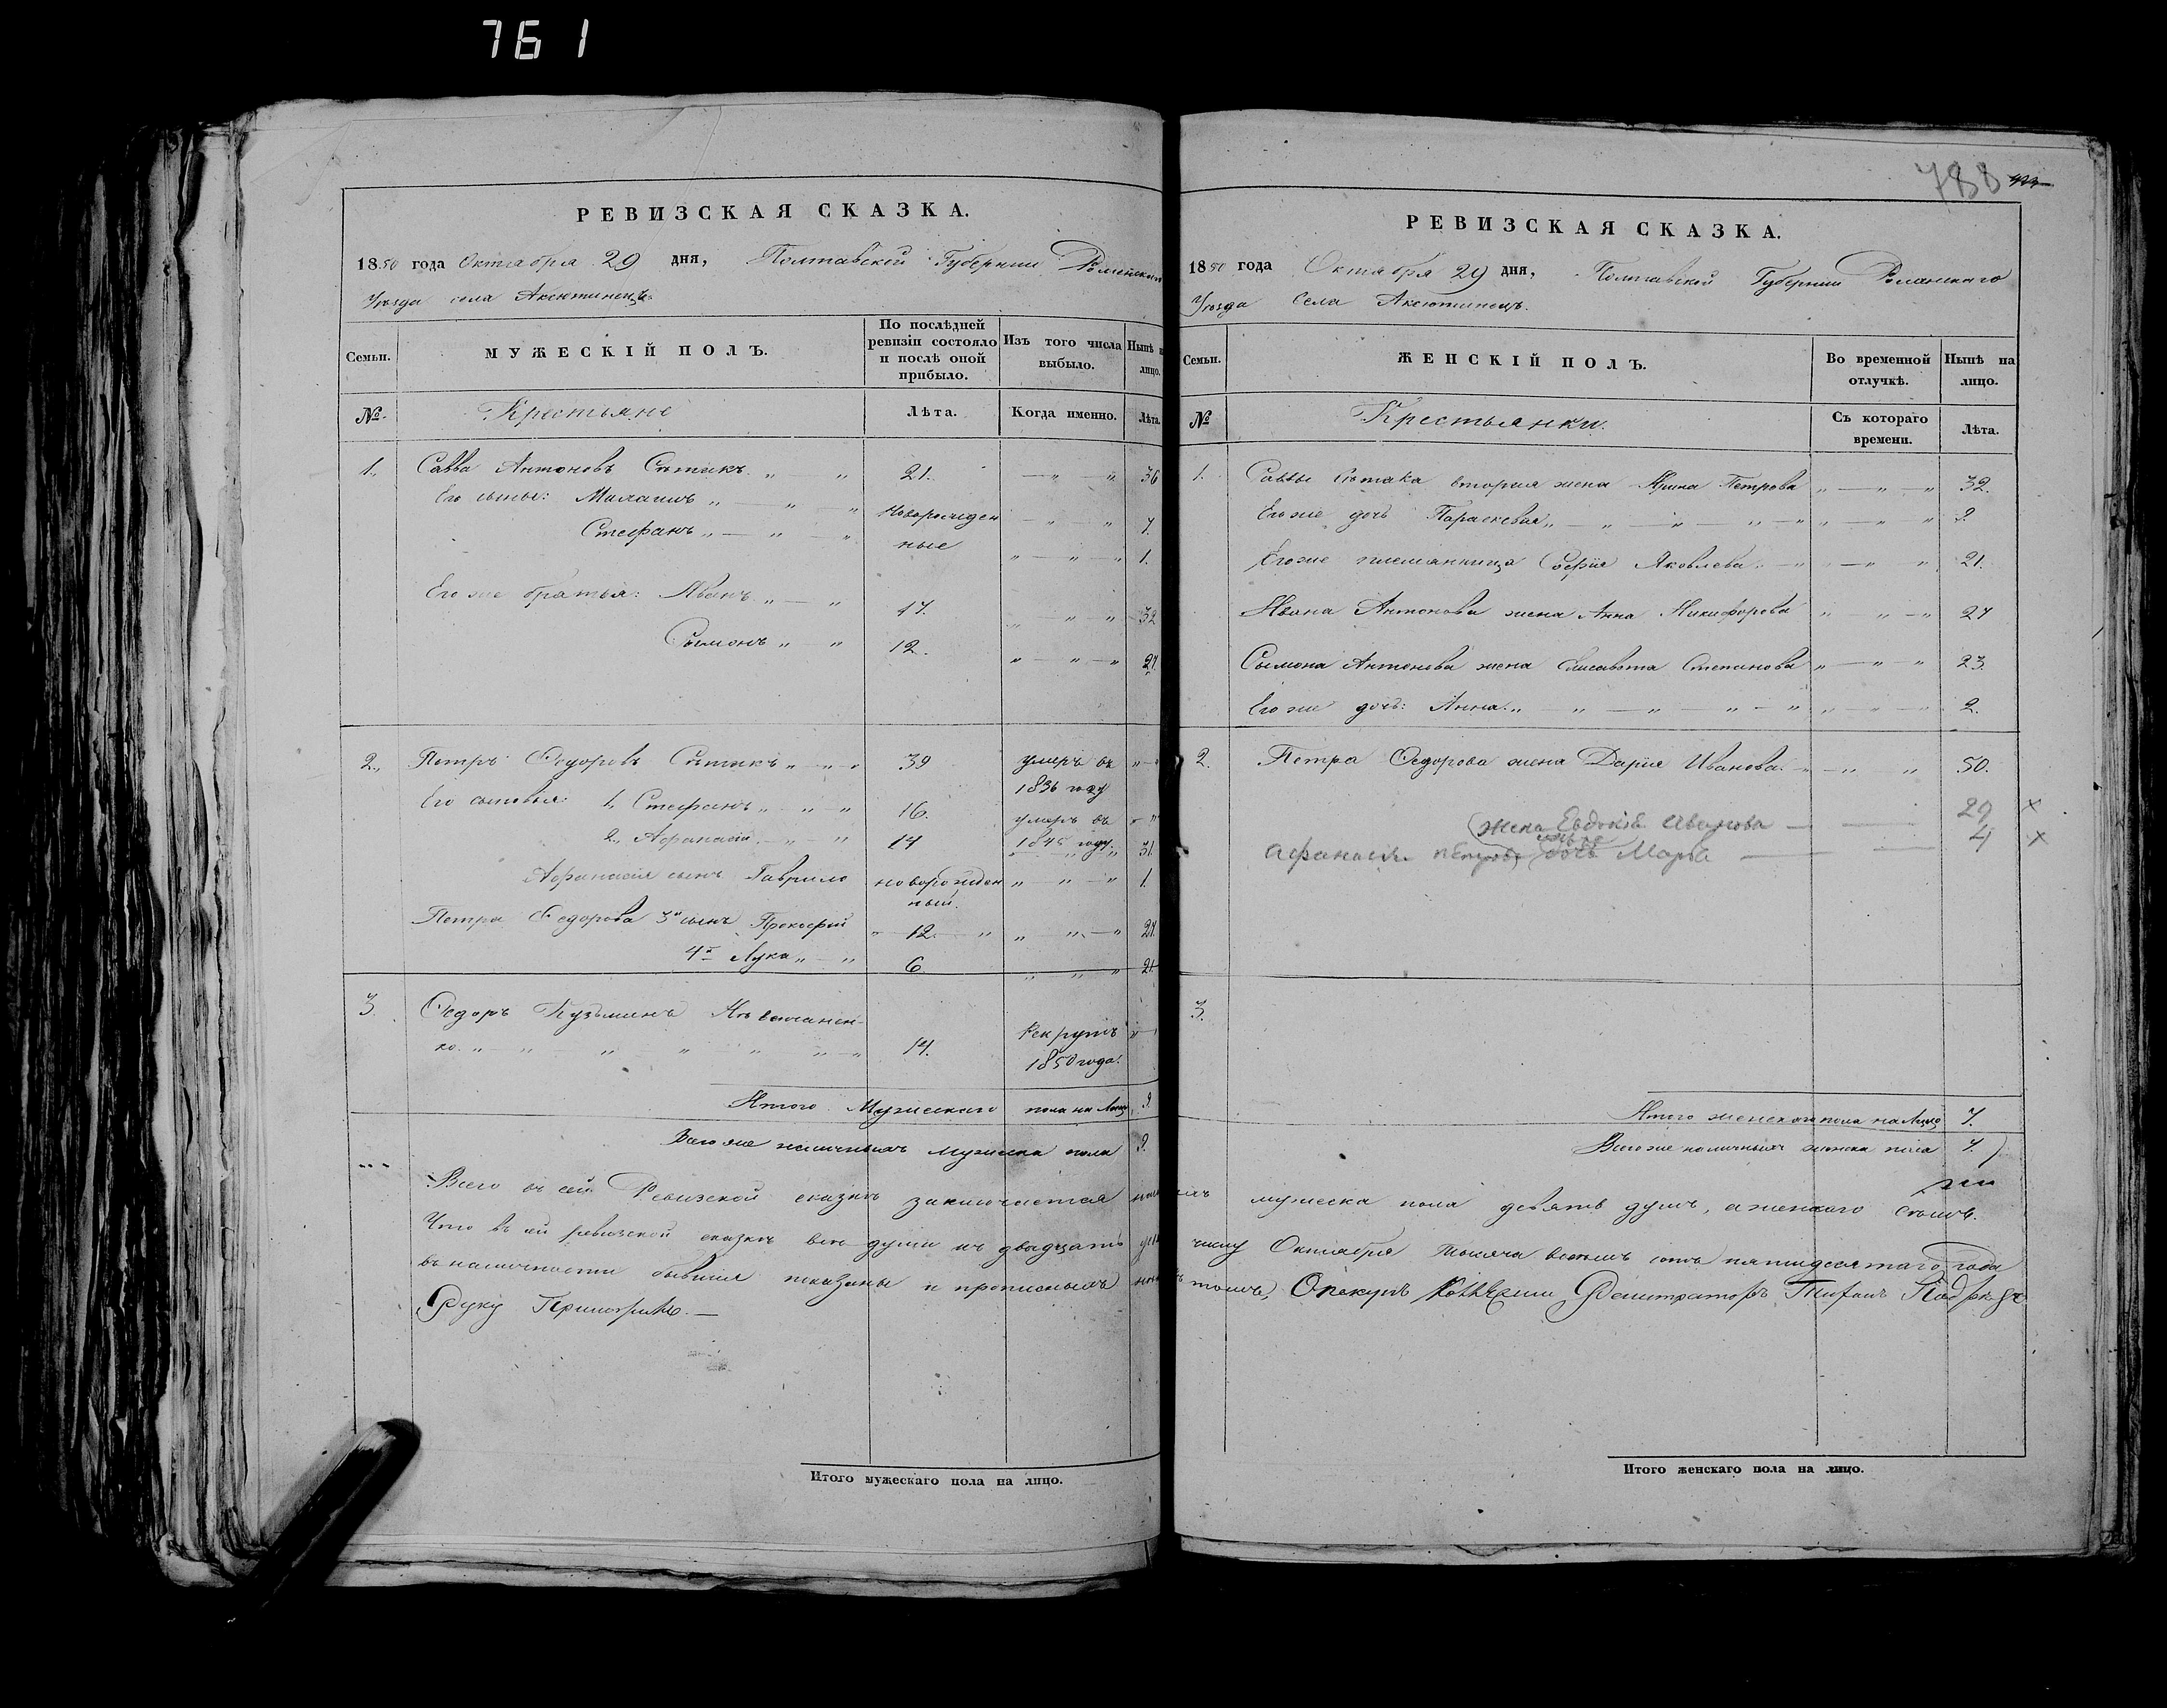 761
РЕВИЗСКАЯ СКАЗКА.
1850 года Октября 29 дня, Полтавской Губернии Роменскаго
Уѣзда села Аксютинецъ
Семьи.
МУЖЕСКІЙ ПОЛЪ.
По послѣдней ревизіи состояло и послѣ оной прибыло.
Изъ того числа выбыло.
Нынѣ на лицо.
№. Крестьяне Лѣта. Когда именно. Лѣта.
1. Савва Антоновъ 21. 36
Его сыны: 7
Стефанъ Новорожденные 1.
Его же братья: Иванъ 17. 32
Сымонъ 12. 27.
2. Петръ Федоровъ 39 умеръ въ 1836 году
Его сыновья: 1, Стефанъ 16. умеръ въ 1845 году
2, Афанасій 14 31.
Афанасія сынъ Гаврило новорожденный. 1.
Петра Федорова 3й сынъ Прокофій 12. 27.
4й Лука 6 21.
3 Федоръ Кузьминъ
ко. 14. Рекрутъ 1850 года.
Итого Мужескаго пола на Лицо 9.
Всего же наличныхъ мужеска пола 9.
Всего въ сей Ревизской сказкѣ заключается
Что въ сей ревизской сказкѣ все души къ двадцать
въ наличности бывшія показаны и прописныхъ
Руку Приложилъ.
Итого мужескаго пола на лицо.
788
РЕВИЗСКАЯ СКАЗКА.
1850 года Октября 29 дня, Полтавской Губернии Роменскаго
Уѣзда Села Аксютинецъ.
Семьи.
ЖЕНСКІЙ ПОЛЪ.
Во временной отлучкѣ.
Нынѣ на лицо.
№ Крестьянки. Съ котораго времени. Лѣта.
1. Саввы вторая жена Ирина Петрова 32.
Его же дочь Параскевія 9.
Его же племянница Софія Яковлева 21.
Ивана Антонова жена Анна Никифорова 27
Сымона Антонова жена Елисавета Степанова 23.
Его же дочь: Анна 2.
2. Петра Федорова жена Дарія Иванова 50.
жена Евдокія Иванова 29 х
Афанасія Петрова дочь Марѳа 4 х
3.
Итого женскаго пола на Лицо 7.
Всего же наличныхъ женска пола 7.
мужеска пола девять душъ, а женскаго
числу Октября тысяча восемь сотъ пятидесятаго года
томъ, Опекунъ Регистраторъ
Итого женскаго пола на лицо.